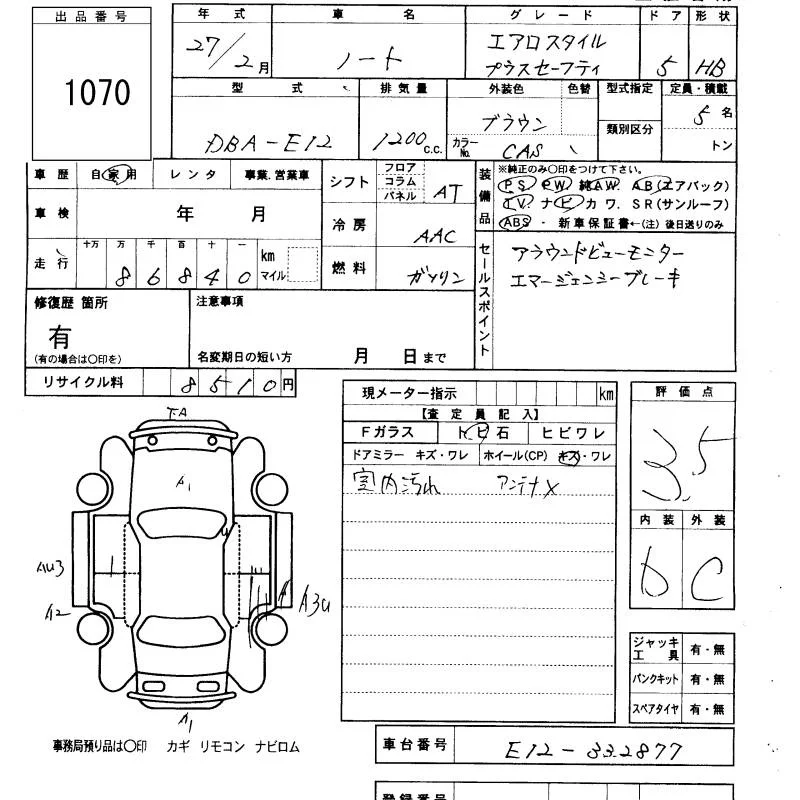 出品番号
1070
年式 車名 グレード ドア 形状
27/2月 ノート エアロスタイル プラスセーフティ 5 HB
型式 排気量 外装色 色替 型式指定 定員・積載
類別区分
DBA-E12 1200c.c. ブラウン カラーNo. CAS 5名 トン
車歴 自家用 レンタ 事業.営業車
車検 年 月
走行 十万 万 千 百 十 一 km マイル
8 6 8 4 0
シフト フロア コラム パネル AT
冷房 AAC
燃料 ガソリン
装備品 ※純正のみ○印をつけて下さい。
PS PW 純AW. AB(エアバック)
TV ナビ カワ. SR(サンルーフ)
ABS ・ 新車保証書←(注)後日送りのみ
セールスポイント
アラウンドビューモニター
エマージェンシーブレーキ
修復歴 箇所
有
(有の場合は○印を)
注意事項
名変期日の短い方 月 日まで
リサイクル料 8510円
現メーター指示 km
【査定員記入】
Fガラス トビ石 ヒビワレ
ドアミラー キズ・ワレ ホイール(CP) キズ・ワレ
室内汚れ アンテナX
評価点
3.5
内装 外装
D C
A1
U
AU3
A2
A3U
A1
ジャッキ 工具 有・無
パンクキット 有・無
スペアタイヤ 有・無
事務局預り品は○印 カギ リモコン ナビロム
車台番号 E12-332877
登録番号